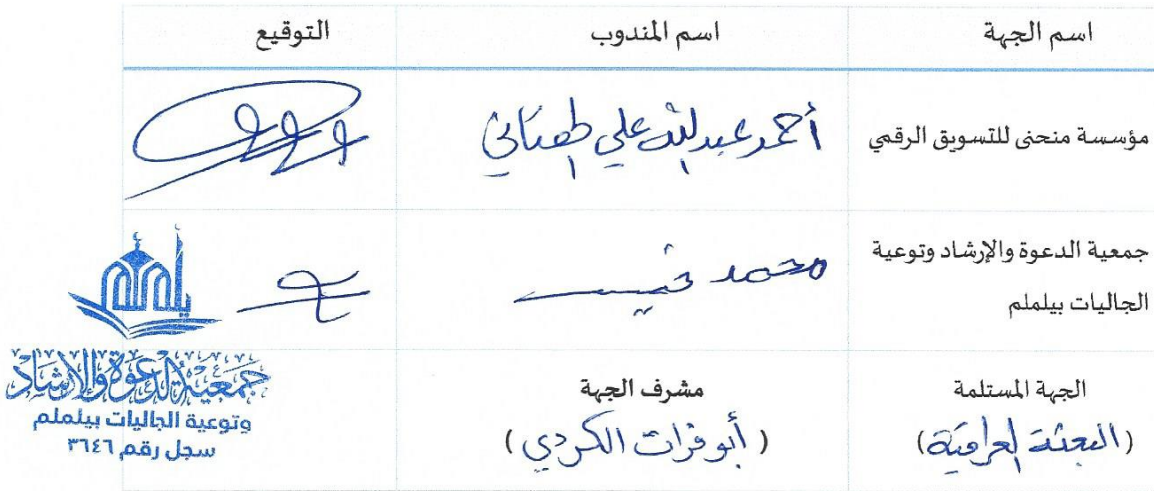 اسم الجهة اسم المندوب التوقيع
مؤسسة منحنى للتسويق الرقمي أحمد عبدالله علي
جمعية الدعوة والإرشاد وتوعية
الجاليات بيلملم
محمد خميس
الجهة المستلمة مشرف الجهة
(البعثة العراقية) (أبو فرات الكردي)
يلملم
جمعية الدعوة والإرشاد
وتوعية الجاليات بيلملم
سجل رقم ٣٦٤٦